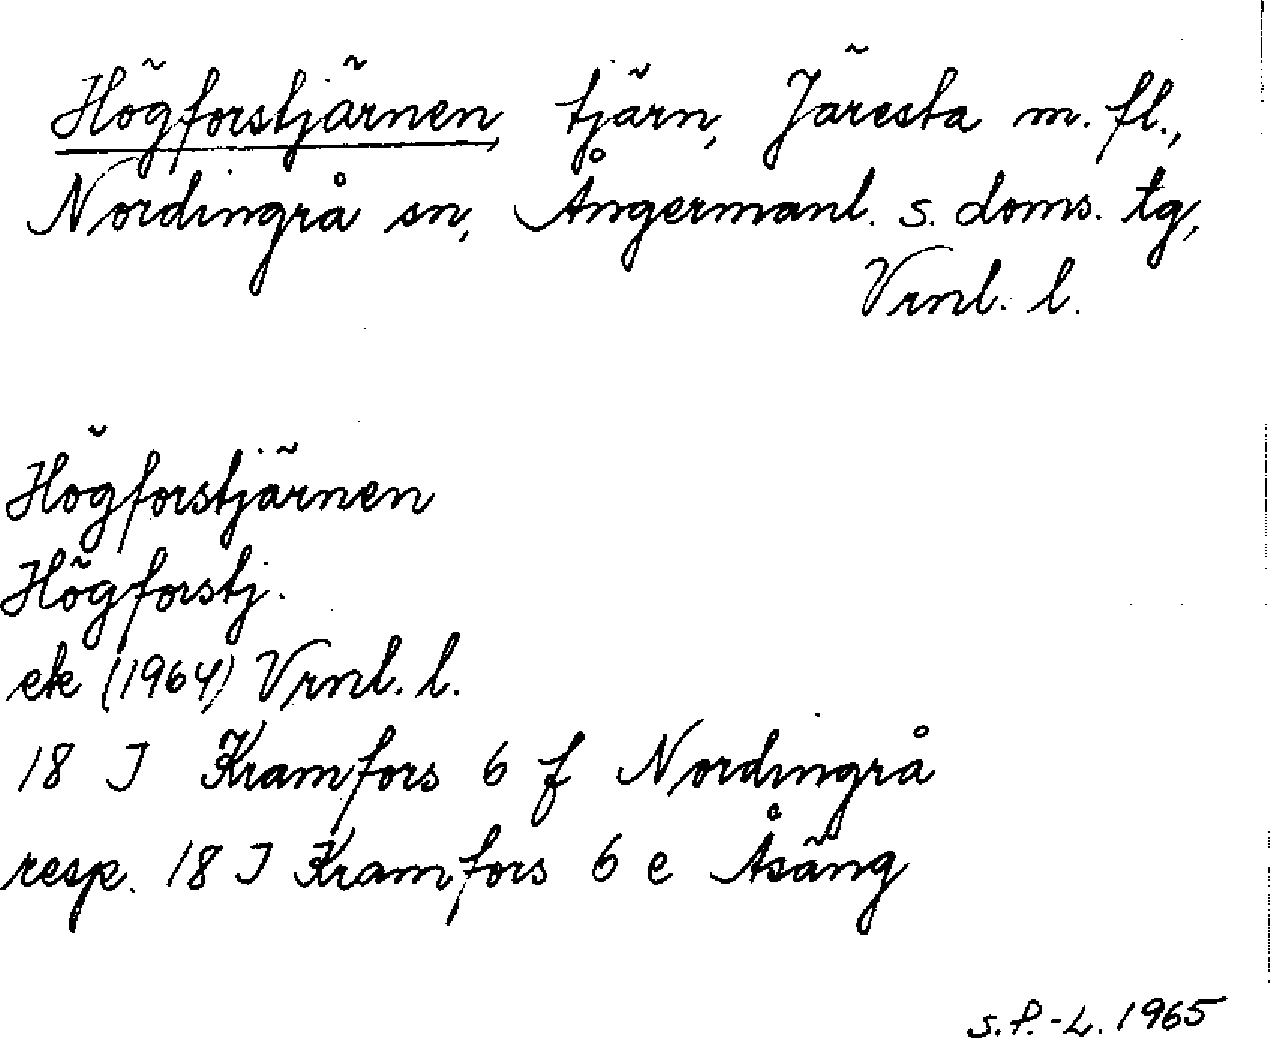 Högforstjärnen, tjärn, Järesta m. fl.,
Nordingrå sn, Ångermanl. s. doms. tg,
Vrnl. l.
Högforstjärnen
Högforstj.
ek (1964) Vrnl. l.
18 I Kramfors 6 f Nordingrå
resp. 18 I Kramfors 6 e Åsäng
S.P.-L. 1965